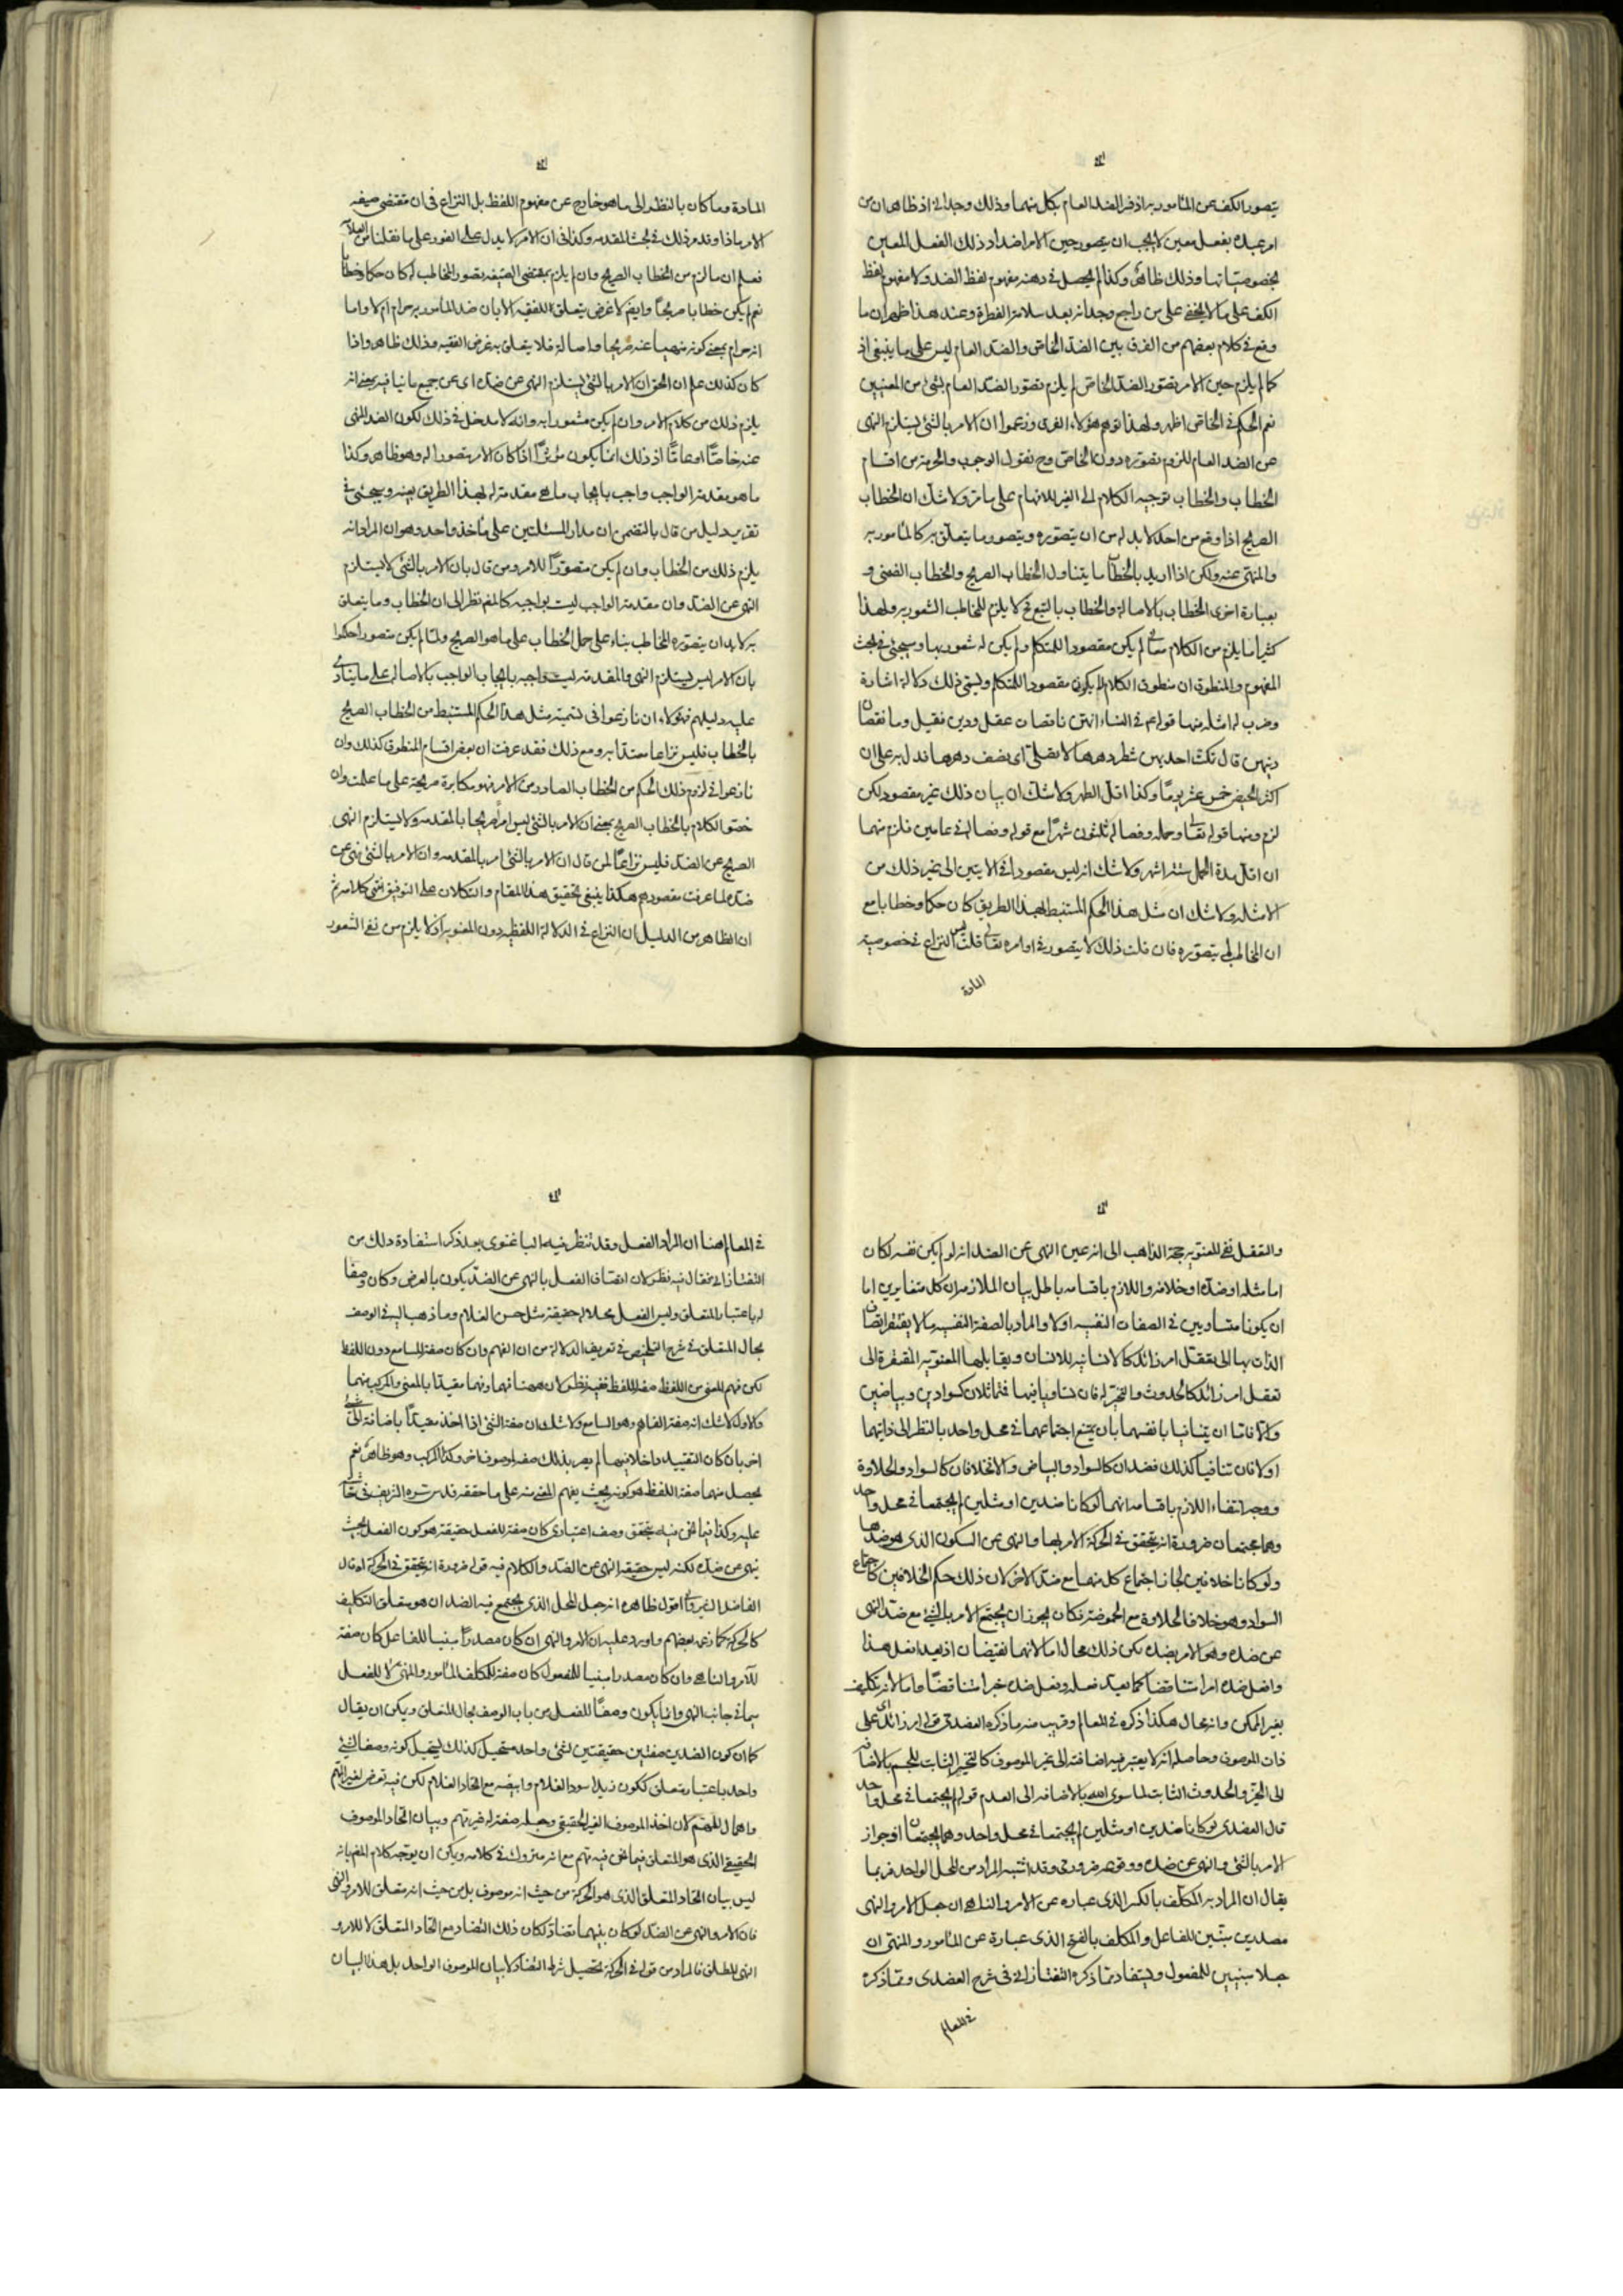 يتصور الكف عن المأمور به اذ في الضد العام بكل منهما وذلك وجداني اذ ظاهر ان من
امر عبده بفعل معين لا يجب ان يتصور حين الامر اضداد ذلك الفعل المعين
بخصوصياتها وذلك ظاهر وكذا لم يحصل في ذهنه مفهوم لفظ الضد ولا مفهوم لفظ
الكف على ما لا يخفى على من راجع وجدانه بعد سلامة الفطرة وعند هذا ظهر ان ما
وقع في كلام بعضهم من الفرق بين الضد الخاص والضد العام ليس على ما ينبغي اذ
كما لم يلزم حين الامر تصور الضد الخاص لم يلزم تصور الضد العام بشئ من المعنيين
نعم الحكم في الخاص اظهر ولهذا توهم هؤلاء الفرق وزعموا ان الامر بالشئ يستلزم النهى
عن الضد العام للزوم تصوره دون الخاص وح نقول الوجوب والحرمة من اقسام
الخطاب والخطاب توجيه الكلام الى الغير للافهام على ما مر ولا شك ان الخطاب
الصريح اذا وقع من احد لا بد له من ان يتصوره ويتصور ما يتعلق به كالمأمور به
والمنهى عنه ولكن اذا اريد بالخطاب ما يتناول الخطاب الصريح والخطاب الضمنى و
بعبارة اخرى الخطاب بالاصالة والخطاب بالتبع فح لا يلزم للمخاطب الشعور به ولهذا
كثيرا ما يلزم من الكلام معان لم يكن مقصودا للمتكلم ولم يكن له شعور بها وسيجئ في بحث
المفهوم والمنطوق ان منطوق الكلام لم يكون مقصودا للمتكلم ويسمى ذلك دلالة اشارة
وضرب له امثلة منها قوله عم في النساء انهن ناقصات عقل ودين فقيل وما نقصان
دينهن قال تمكث احديهن شطر دهرها لا تصلى اى نصف دهرها فدل به على ان
اكثر الحيض خمس عشر يوما وكذا اقل الطهر ولا شك ان بيان ذلك غير مقصود لكن
لزم ومنها قوله تعالى وحمله وفصاله ثلثون شهرا مع قوله وفصاله في عامين فلزم منهما
ان اقل مدة الحمل ستة اشهر ولا شك انه ليس مقصودا في الايتين الى غير ذلك من
الامثلة ولا شك ان مثل هذا الحكم المستنبط بهذا الطريق كان حكما وخطابا مع
ان المخاطب لم يتصوره فان قلت ذلك لا يتصور في اوامره تعالى قلت ليس النزاع في خصوصية
المادة
المادة وما كان بالنظر الى ما هو خارج عن مفهوم اللفظ بل النزاع في ان مقتضى صيغة
الامر ماذا وقد مر ذلك في بحث المقدمة وكذا في ان الامر لا يدل على الفور على ما نقلنا من العلامة
فعلم ان ما لزم من الخطاب الصريح وان لم يلزم بمقتضى الصيغة تصور المخاطب له كان حكما وخطابا
نعم لم يكن خطابا صريحا وايضا لا غرض يتعلق للفقيه الا بان ضد المأمور به حرام ام لا واما
انه حرام بمعنى كونه منهيا عنه صريحا واصالة فلا يتعلق به غرض الفقيه وذلك ظاهر واذا
كان كذلك علم ان الحق ان الامر بالشئ يستلزم النهى عن ضده اى عن جميع ما ينافيه بمعنى انه
يلزم ذلك من كلام الامر وان لم يكن مشعورا به وانه لا مدخل في ذلك لكون الضد المنهى
عنه خاصا او عاما اذ ذلك انما يكون مؤثرا اذا كان الامر متصورا له وهو ظاهر وكذا
ما هو مقدمة الواجب واجب بايجاب ما هي مقدمة له بهذا الطريق بعينه وسيجئ في
تقرير دليل من قال بالتضمن ان مدار المسئلتين على مأخذ واحد وهو ان المراد انه
يلزم ذلك من الخطاب وان لم يكن متصورا للامر ومن قال بان الامر بالشئ لا يستلزم
النهى عن الضد وان مقدمة الواجب ليست بواجبة كالمص نظر الى ان الخطاب وما يتعلق
به لا بد ان يتصوره المخاطب بناء على حمل الخطاب على ما هو الصريح ولما لم يكن متصورا حكموا
بان الامر ليس يستلزم النهى والمقدمة ليست واجبة بايجاب الواجب بالاصالة على ما ينادى
عليه دليلهم فهؤلاء ان نازعوا في تسمية مثل هذا الحكم المستنبط من الخطاب الصريح
بالخطاب فليس نزاعا معتدا به ومع ذلك فقد عرفت ان بعض اقسام المنطوق كذلك وان
نازعوا في لزوم ذلك الحكم من الخطاب الصادر من الامر فهو مكابرة صريحة على ما علمت وان
خصوا الكلام بالخطاب الصريح بمعنى ان الامر بالشئ ليس امرا صريحا بالمقدمة ولا يستلزم النهى
الصريح عن الضد فليس نزاعا لمن قال ان الامر بالشئ امر بالمقدمة وان الامر بالشئ نهى عن
ضده لما عرفت مقصودهم هكذا ينبغي تحقيق هذا المقام والتكلان على التوفيق انتهى كلامه ثم
ان الظاهر من الدليل ان النزاع في الدلالة اللفظية دون المعنوية اذ لا يلزم من نفى الشعور
والتعقل نفى المعنوية حجة الذاهب الى انه عين النهى عن الضد انه لو لم يكن نفسه لكان
اما مثله او ضده او خلافه واللازم باقسامه باطل بيان الملازمة ان كل متغايرين اما
ان يكونا متساويين في الصفات النفسية اولا والمراد بالصفة النفسية ما لا يفتقر اتصاف
الذات بها الى تعقل امر زائد كالانسانية للانسان ويقابلها المعنوية المفتقرة الى
تعقل امر زائد كالحدوث والتحيز له فان تساويا فيها فمثلان كسوادين وبياضين
والا فاما ان يتنافيا بانفسهما بان يمتنع اجتماعهما في محل واحد بالنظر الى ذاتيهما
اولا فان تنافيا كذلك فضدان كالسواد والبياض والا فخلافان كالسواد والحلاوة
ووجه انتفاء اللازم باقسامه انهما لو كانا ضدين او مثلين لم يجتمعا في محل واحد
وهما يجتمعان ضرورة انه يتحقق في الحركة الامر بها والنهى عن السكون الذى هو ضدها
ولو كانا خلافين لجاز اجتماع كل منهما مع ضد الاخر لان ذلك حكم الخلافين كاجتماع
السواد وهو خلاف الحلاوة مع الحموضة فكان يجوز ان يجتمع الامر بالشئ مع ضد النهى
عن ضده وهو الامر بضده لكن ذلك محال اما لانهما نقيضان اذ يعد افعل هذا
وافعل ضده امرا متناقضا كما يعد فعله وفعل ضده خبرا متناقضا واما لانه تكليف
بغير الممكن وانه محال هكذا ذكره في المعالم وقريب منه ما ذكره العضدى قوله امر زائد اى على
ذات الموصوف وحاصله انه لا يعتبر فيه اضافته الى غير الموصوف كالتحيز الثابت للجسم بالاضافة
الى الحيز والحدوث الثابت لما سوى الله بالاضافة الى العدم قوله لم يجتمعا في محل واحد
قال العضدى لو كانا ضدين او مثلين لم يجتمعا في محل واحد وهما يجتمعان اذ جواز
الامر بالشئ والنهى عن ضده ووقوعه ضرورى وقد اشتبه المراد من المحل الواحد فربما
يقال ان المراد به المكلف بالكسر الذى عبارة عن الامر والناهى ان جعل الامر والنهى
مصدرين مبنيين للفاعل والمكلف بالفتح الذى عبارة عن المأمور والمنهى ان
جعلا مبنيين للمفعول ويستفاد مما ذكره التفتازانى في شرح العضدى ومما ذكره
في المعالم
في المعالم هنا ان المراد الفعل وقد تنظر فيه الباغنوى بعد ذكر استفادة ذلك من
التفتازانى فقال فيه نظر لان اتصاف الفعل بالنهى عن الضد يكون بالعرض وكان وصفا
له باعتبار المتعلق وليس الفعل محلا له حقيقة مثل حسن الغلام وما ذهب اليه في الوصف
بحال المتعلق في شرح التلخيص في تعريف الدلالة من ان الفهم وان كان صفة السامع دون اللفظ
لكن فهم المعنى من اللفظ صفة اللفظ ففيه نظر لان ههنا فهما وفهما مقيدا بالمعنى والمركب منهما
والاول لا شك انه صفة الفاهم وهو السامع ولا شك ان صفة الشئ اذا اخذ مقيدا باضافته الى شئ
اخر بان كان التقييد داخلا فيهما لم يصر بذلك صفة لموصوف اخر وكذا المركب وهو ظاهر نعم
يحصل منهما صفة اللفظ هو كونه بحيث يفهم المعنى منه على ما حققه قدس سره الشريف في
عليه وكذا فيما نحن فيه يتحقق وصف اعتبارى كان صفة للفعل حقيقة هو كون الفعل بحيث
نهى عن ضده لكنه ليس حقيقة النهى عن الضد والكلام فيه قوله ضرورة انه يتحقق في الحركة اه قال
الفاضل اقول ظاهره انه جعل المحل الذى يجتمع فيه الضدان هو متعلق التكليف
كالحركة كما زعمه بعضهم واورد عليه ان الامر والنهى ان كان مصدرا مبنيا للفاعل كان صفة
للامر والناهى وان كان مصدرا مبنيا للمفعول كان صفة للمكلف المأمور والمنهى لا للفعل
سيما في جانب النهى وانما يكون وصفا للفعل من باب الوصف بحال المتعلق ويمكن ان يقال
كما ان كون الضدين صفتين حقيقتين لشئ واحد مستحيل كذلك يستحيل كونه وصفا لشئ
واحد باعتبار متعلق ككون زيد اسود الغلام وابيضه مع اتحاد الغلام لكن فيه تعرض لغير المهم
واهمال للمهم لان اخذ الموصوف الغير الحقيقى وجعله صفة له غير مهم وبيان اتحاد الموصوف
الحقيقى الذى هو المتعلق فيما نحن فيه مهم مع انه متروك في كلامه ويمكن ان يوجه كلام المص بانه
ليس بيان اتحاد المتعلق الذى هو الحركة من حيث انه موصوف بل من حيث انه متعلق للامر والنهى
فان الامر والنهى عن الضد لو كان بينهما تضاد لكان ذلك التضاد مع اتحاد المتعلق لا للامر و
النهى المطلق فالمراد من قوله في الحركة تحصيل شرط التضاد لا بيان الموصوف الواحد بل هذا البيان